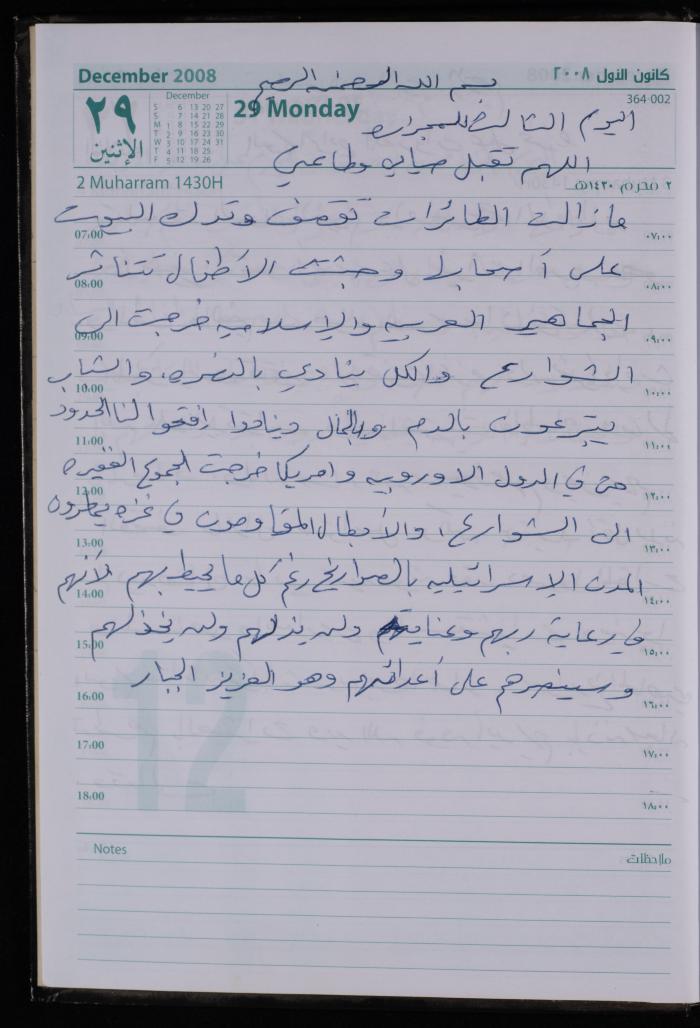 December 2008
كانون الأول ٢٠٠٨
بسم الله الرحمن الرحيم
٢٩
الإثنين
December
S 6 13 20 27
S 7 14 21 28
M 1 8 15 22 29
T 2 9 16 23 30
W 3 10 17 24 31
T 4 11 18 25
F 5 12 19 26
29 Monday
364-002
اليوم الثالث للمجزرة
اللهم تقبل صيامي وطاعتي
2 Muharram 1430H
٢ محرم ١٤٣٠هـ
ما زالت الطائرات تقصف وتدك البيوت
07:00 ٠٧:٠٠
على أصحابها وجثث الأطفال تتناثر
08:00 ٠٨:٠٠
الجماهير العربيه والإسلاميه خرجت الى
09:00 ٠٩:٠٠
الشوارع والكل ينادي بالنصره، والشباب
10:00 ١٠:٠٠
يتبرعون بالدم وبالمال وينادوا إفتحوا لنا الحدود
11:00 ١١:٠٠
حتى في الدول الاوروبيه وامريكا خرجت الجموع الغفيره
12:00 ١٢:٠٠
الى الشوارع، والأبطال المقاومون في غزه يمطرون
13:00 ١٣:٠٠
المدن الإسرائيليه بالصواريخ رغم كل ما يحيط بهم لأنهم
14:00 ١٤:٠٠
في رعاية ربهم وعنايته ولن يذلهم ولن يخذلهم
15:00 ١٥:٠٠
وسينصرهم على أعدائهم وهو العزيز الجبار
16:00 ١٦:٠٠
12
17:00 ١٧:٠٠
18:00 ١٨:٠٠
Notes
ملاحظات